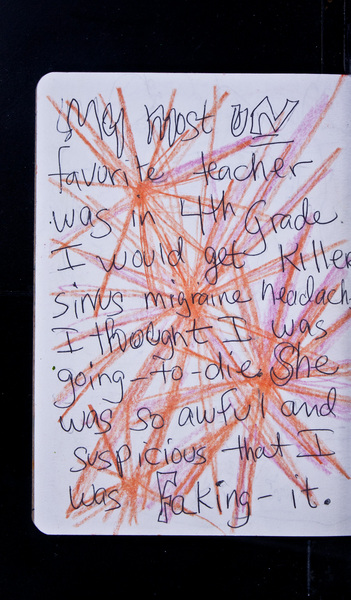 My most UN
favorite teacher
was in 4th Grade.
I would get Killer
sinus migraine headach
I thought I was
going-to-die. She
was so awful and
suspicious that I
was Faking-it.